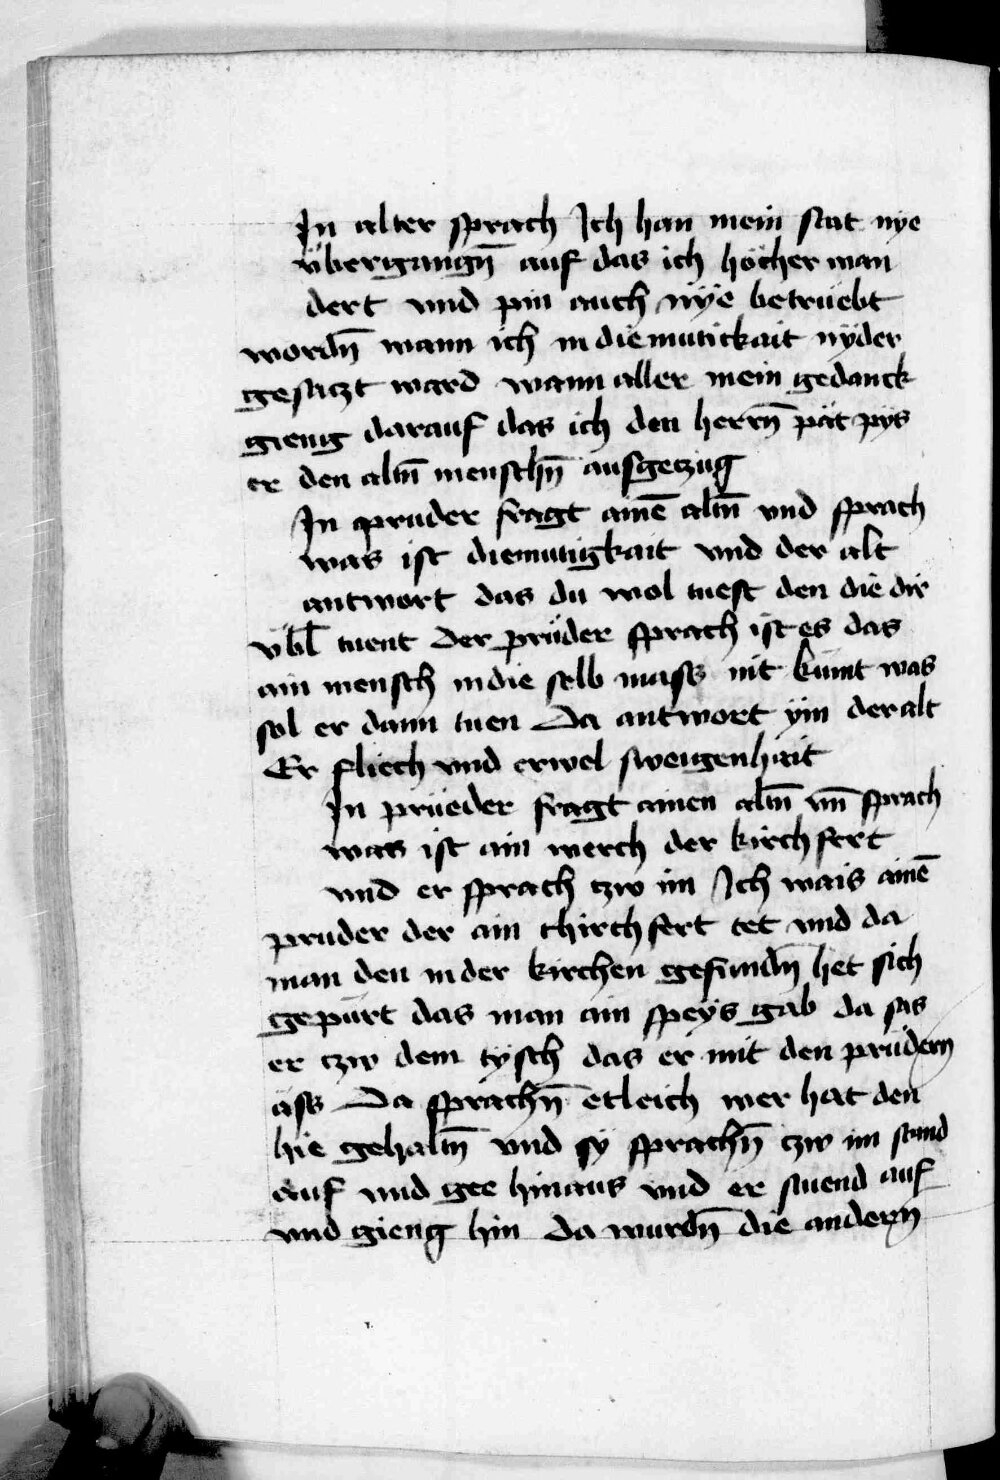 In alter sprach Ich han mein stat nye
vbergangn̄ auf das ich höcher wan
dert vnd pin auch nye betruebt
wordn̄ wann ich in diemutickait nyder
gesaczt ward wann aller mein gedanck
gieng darauf das ich den herrn̄ pät pys
er den altn̄ menschn̄ ausgeczug
In pruder fragt ainē altn̄ vnd sprach
was ist diemutigkait vnd der alt
antwort das du wol tuest den die dir
vbl̄ tuent Der prüder sprach ist es das
ain mensch in die selb mass nit kümt was
sol er dann tuen Da antwort ym der alt
Er fliech vnd erwel sweigenhait
In prüeder fragt ainen altn̄ vn̄ sprach
was ist ain werch der kirchfert
vnd er sprach czw im Ich wais ainē
pruder der ain chirchfert tet vnd da
man den in der kirchen gefundn̄ het sich
gepürt das man ain speys gab da sas
er czw dem tysch das er mit den prüdern
äss Da sprachn̄ etleich wer hat den
hie gehaltn̄ vnd sy sprachn̄ czw im stand
auf vnd gee hinaus vnd er stuend auf
vnd gieng hin da wurdn̄ die andern